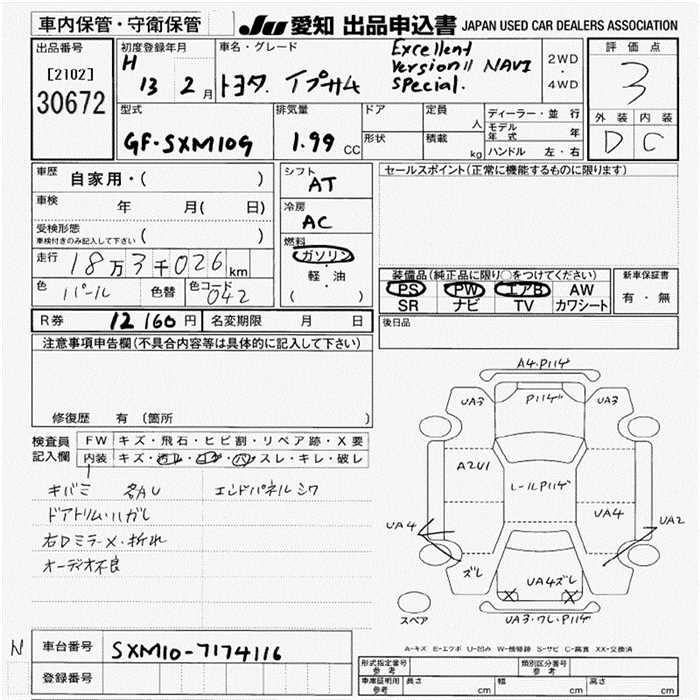 車内保管・守衛保管
JU 愛知 出品申込書 JAPAN USED CAR DEALERS ASSOCIATION
出品番号
[2102]
30672
初度登録年月
H 13 2月
車名・グレード
トヨタ イプサム
Excellent
Version II NAVI
Special.
2WD
・
4WD
評価点
3
外装 内装
D C
型式
GF-SXM10G
排気量
1.99 CC
ドア
形状
定員
人
積載
kg
ディーラー・並行
モデル年式 年
ハンドル 左・右
車歴
自家用・( )
車検
年 月( 日)
受検形態
車検付きのみ記入して下さい ( )
走行
18万3千026km
色
パール
色替
色コード
042
シフト
AT
冷房
AC
燃料
ガソリン
軽・油
( )
セールスポイント(正常に機能するものに限ります)
装備品(純正品に限り○をつけてください)
PS PW エアB AW
SR ナビ TV カワシート
新車保証書
有・無
R券 12160円 名変期限 月 日
後日品
注意事項申告欄(不具合内容等は具体的に記入して下さい)
修復歴 有(箇所 )
検査員
記入欄
FW キズ・飛石・ヒビ割・リペア跡・X要
内装 キズ・スレ・キレ・破レ
キバミ 各AU エンドパネルシワ
ドアトリム・ハガレ
右Dミラー×・折れ
オーディオ不良
A4・Pハゲ
UA3 Pハゲ UA3
A2U1
レールPハゲ
UA4 UA4 UA2
ズレ
UA4ズレ
X X
スペア
UA3・ワレ・Pハゲ
A-キズ E-エクボ U-凹み W-補修跡 S-サビ C-腐食 XX-交換済
N
車台番号
SXM10-7174116
登録番号
形式指定番号
参考
類別区分番号
参考
車庫証明用
参考
長さ cm 幅 cm 高さ cm